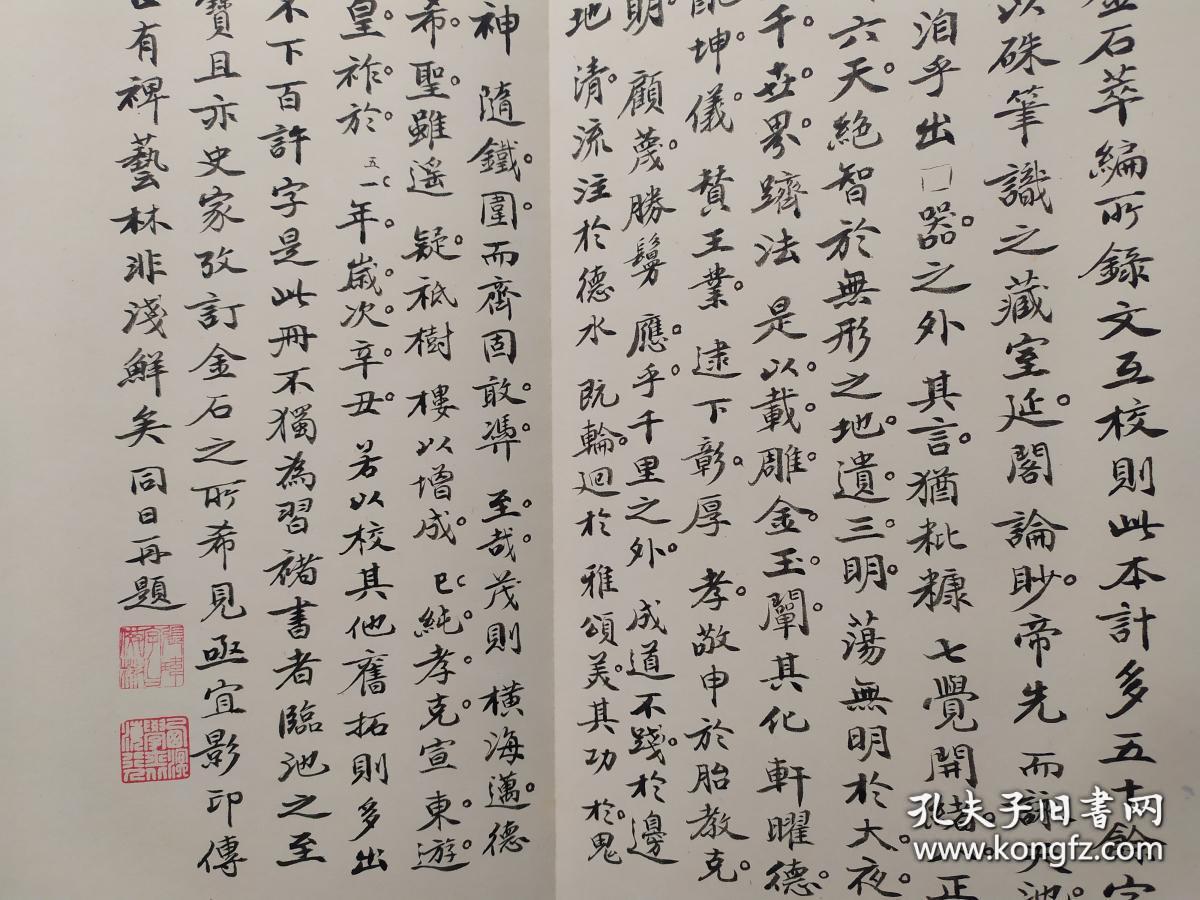 金石萃編所錄文互校則此本計多五十餘字
以硃筆識之藏室延閣論眇帝先而詞
洎乎出□器之外其言猶粃糠七覺開緒正
六天絕智於無形之地遺三明蕩無明於大夜
千世界躋法是以載雕金玉闡其化軒曜德
坤儀贊王業逮下彰厚孝敬申於胎教克
明顧蔑勝鬘應乎千里之外成道不踐於邊
地清流注於德水既輪迴於雅頌美其功於鬼
神隨鐵圍而齊固敢憑至哉茂則橫海邁德
希聖雖遙疑祇樹樓以增成巳純孝克宣東遊
皇祚於五一年歲次辛丑若以校其他舊拓則多出
不下百許字是此冊不獨為習褚書者臨池之至
寶且亦史家攷訂金石之所希見亟宜影印傳
有裨藝林非淺鮮矣同日再題
孔夫子旧书网
www.kongfz.com